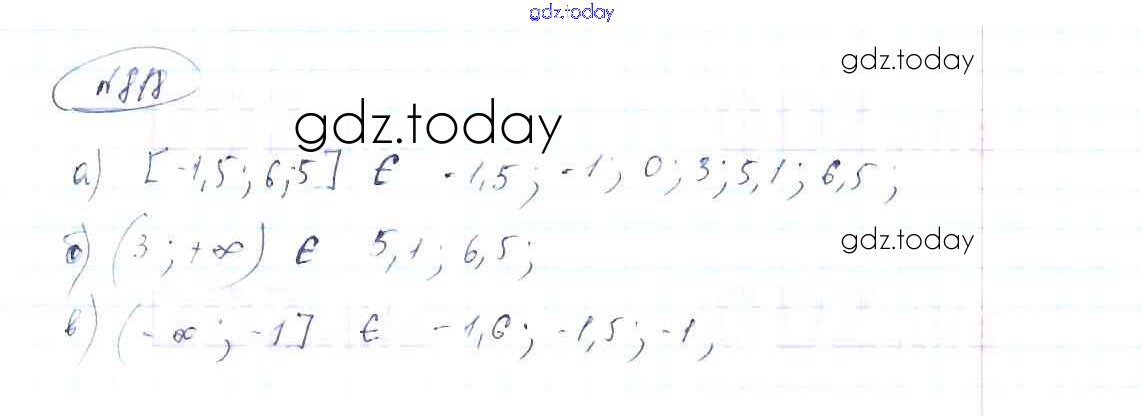 gdz.today
№818
gdz.today
gdz.today
а) [-1,5; 6,5] ∈ -1,5; -1; 0; 3; 5,1; 6,5;
б) (3; +∞) ∈ 5,1; 6,5;
gdz.today
в) (-∞; -1] ∈ -1,6; -1,5; -1,